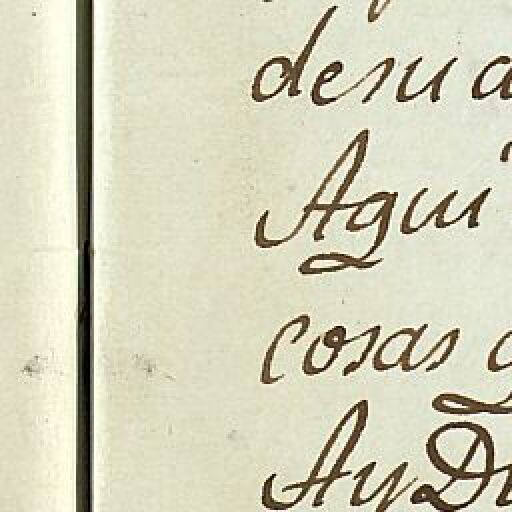 desu a
Agui
cosas
Ay Di